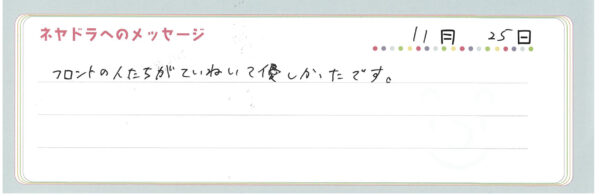 ネヤドラへのメッセージ
11月 25日
フロントの人たちがていねいで優しかったです。